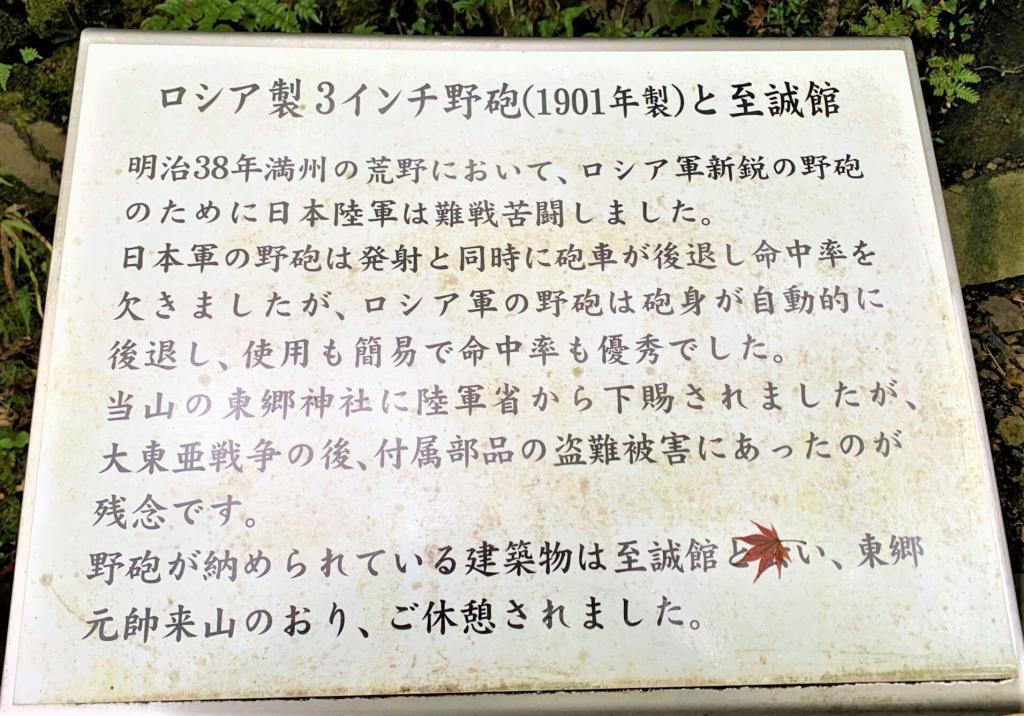 ロシア製3インチ野砲(1901年製)と至誠館
明治38年満州の荒野において、ロシア軍新鋭の野砲
のために日本陸軍は難戦苦闘しました。
日本軍の野砲は発射と同時に砲車が後退し命中率を
欠きましたが、ロシア軍の野砲は砲身が自動的に
後退し、使用も簡易で命中率も優秀でした。
当山の東郷神社に陸軍省から下賜されましたが、
大東亜戦争の後、付属部品の盗難被害にあったのが
残念です。
野砲が納められている建築物は至誠館と い、東郷
元帥来山のおり、ご休憩されました。